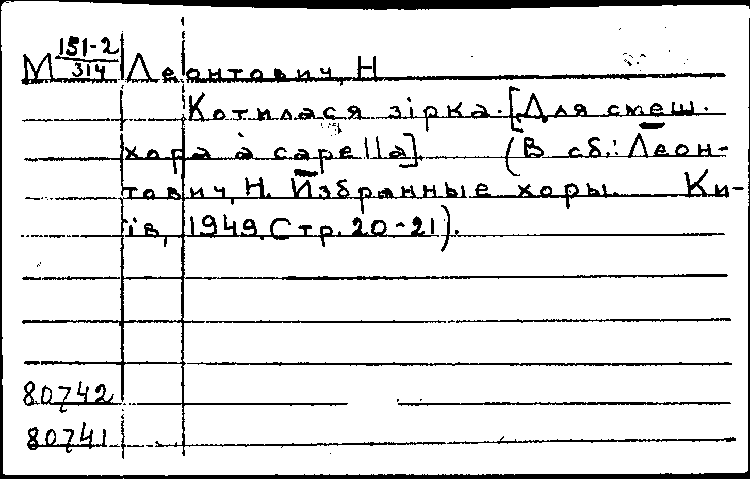 М 151-2/314 Леонтович, Н
Котилася зірка. [Для смеш.
хора à capella]. (В сб.: Леон-
тович, Н. Избранные хоры. Ки-
їв, 1949. Стр. 20-21).
80742
80741